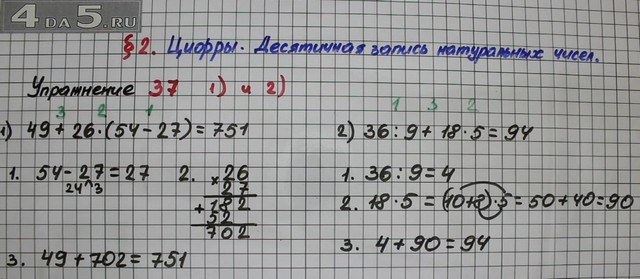 4 DA 5.RU
§2. Цифры. Десятичная запись натуральных чисел.
Упражнение 37 1) и 2)
3 2 1
1) 49 + 26·(54 - 27) = 751
1. 54 - 27 = 27
24 3
2. × 26
27
+ 182
52
702
3. 49 + 702 = 751
1 3 2
2) 36 : 9 + 18·5 = 94
1. 36 : 9 = 4
2. 18·5 = (10+8)·5 = 50 + 40 = 90
3. 4 + 90 = 94